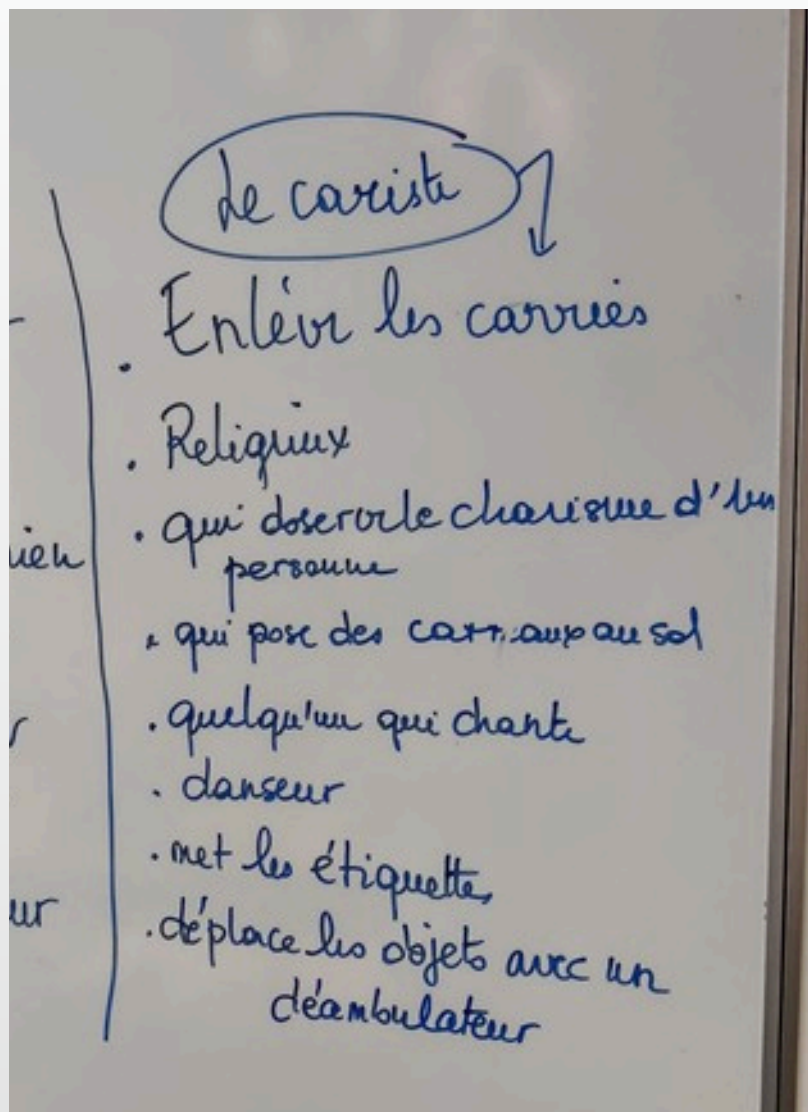 Le cariste
. Enlever les carries
. Religieux
. qui observe le charisme d'un
personne
. qui pose des carreaux au sol
. quelqu'un qui chante
. danseur
. met les étiquettes
. déplace les objets avec un
déambulateur